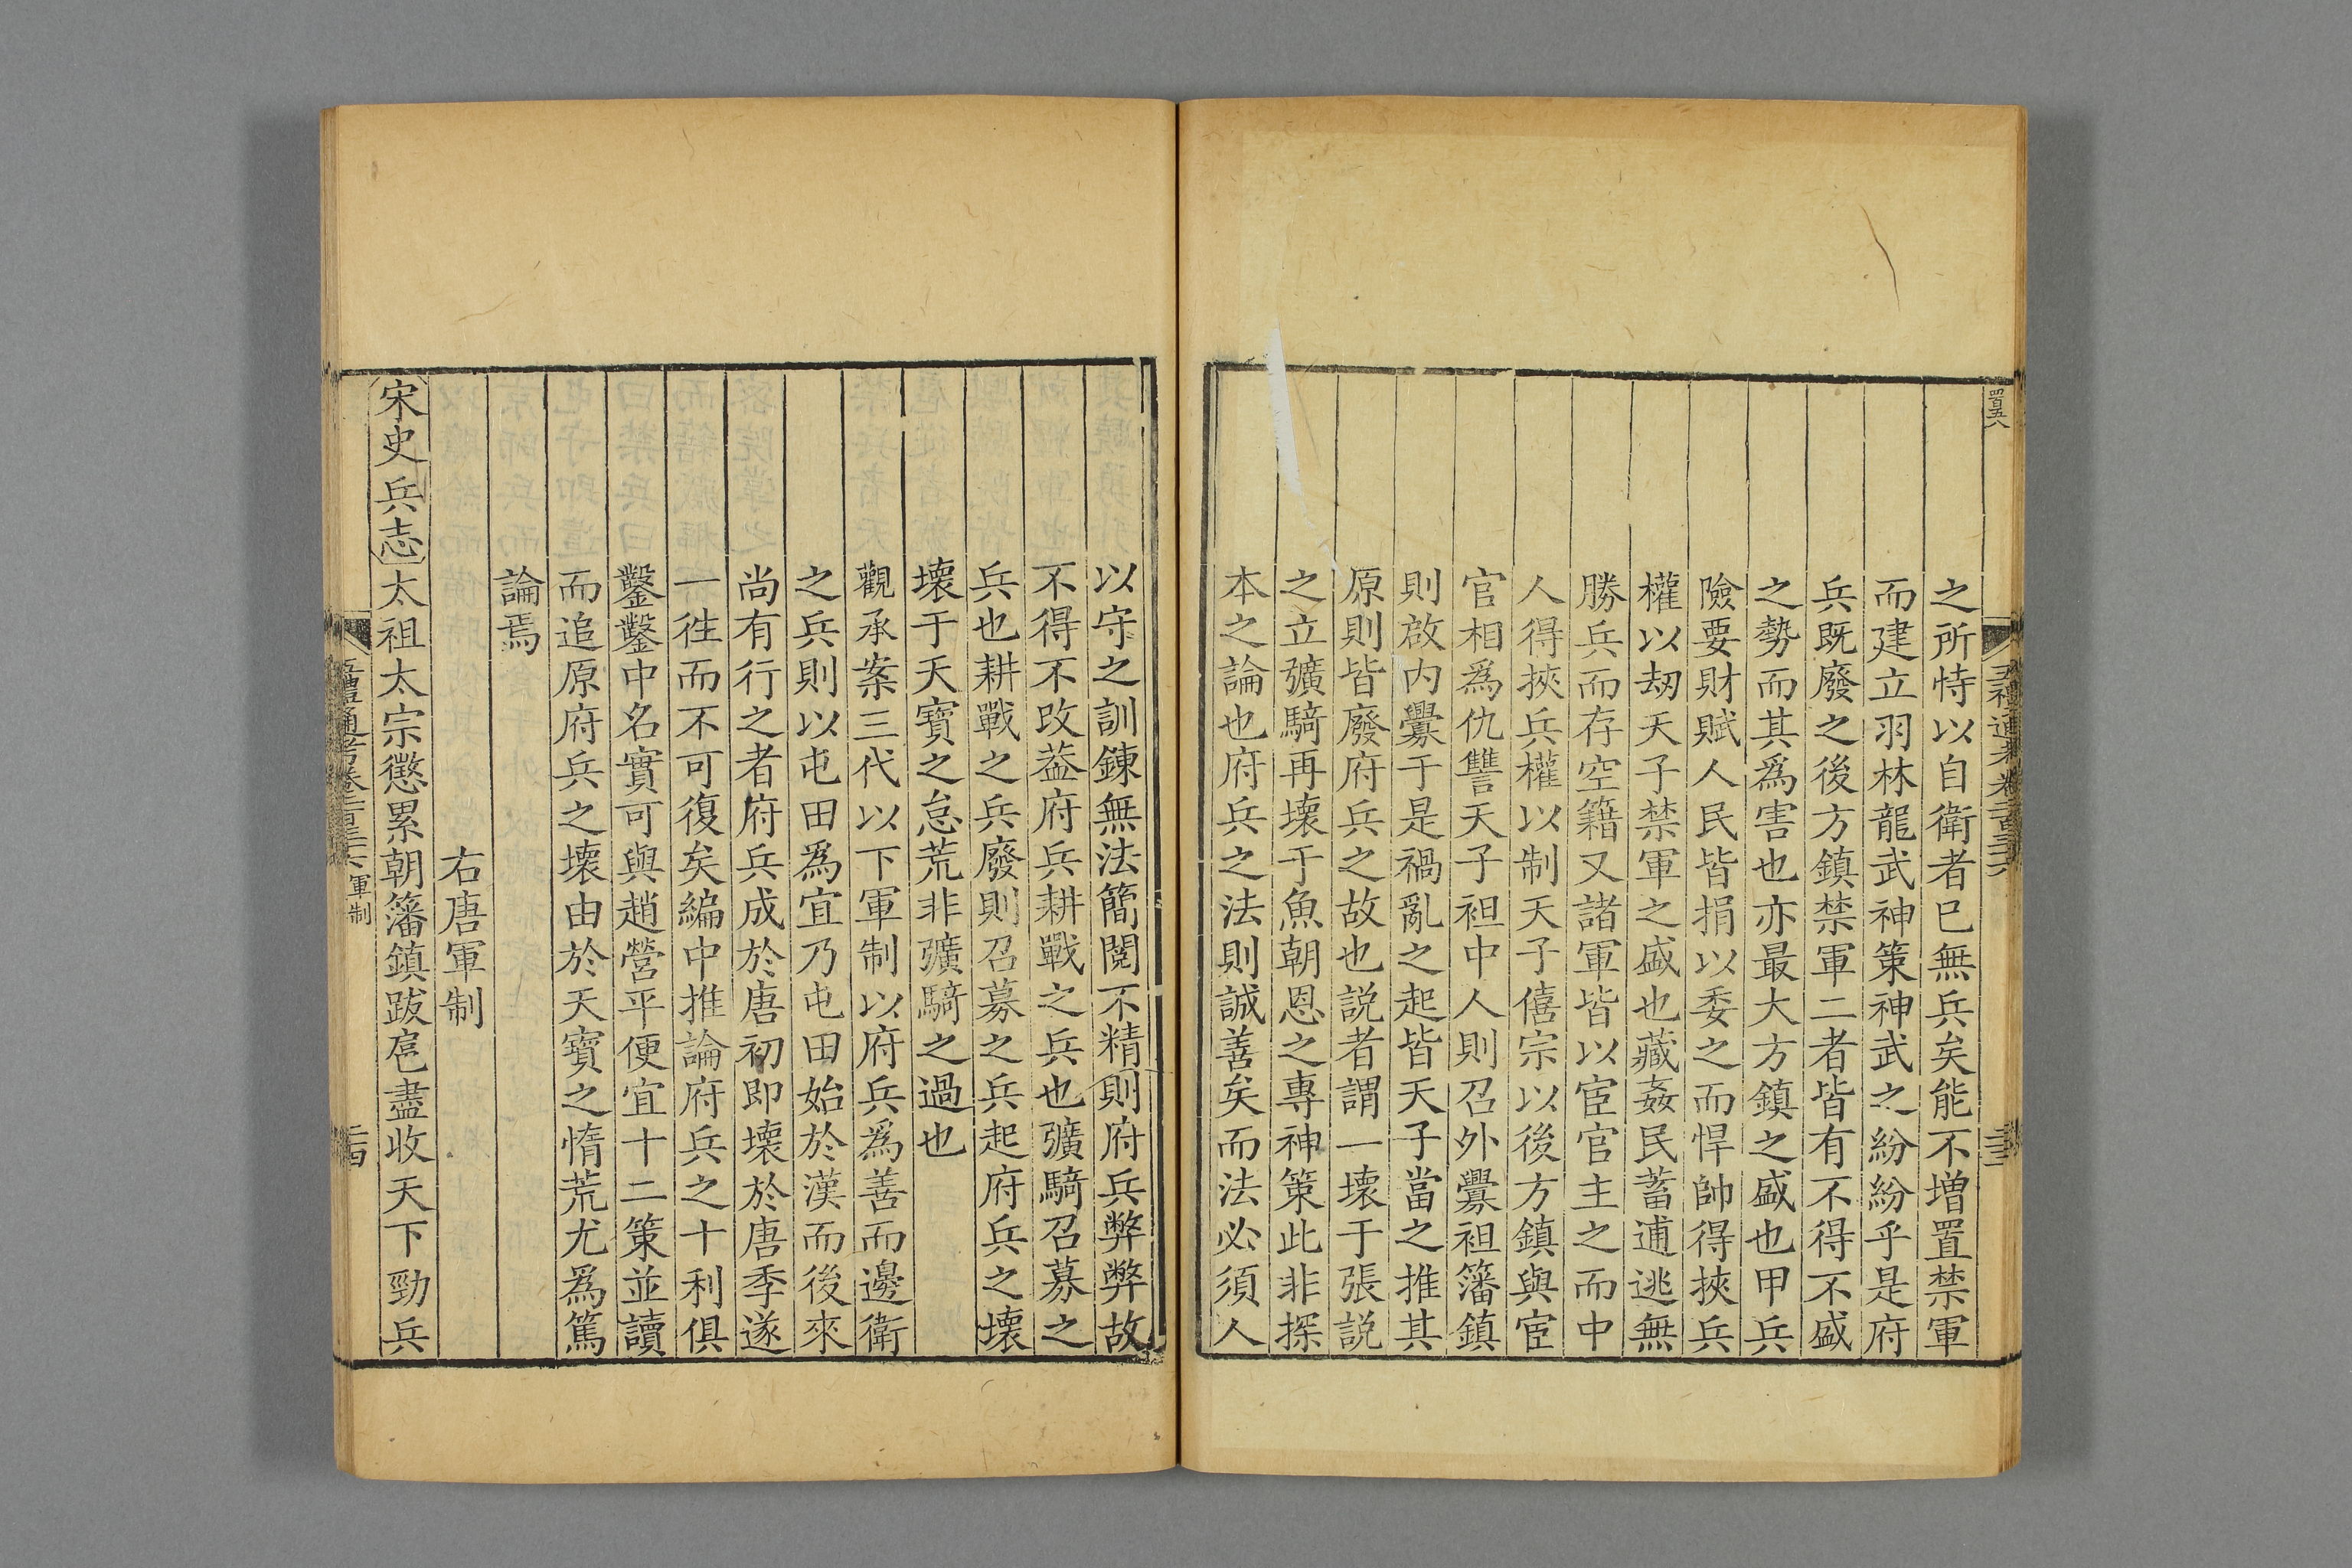 之所恃以自衛者已無兵矣能不增置禁軍
而建立羽林龍武神策神武之紛紛乎是府
兵既廢之後方鎮禁軍二者皆有不得不盛
之勢而其爲害也亦最大方鎮之盛也甲兵
險要財賦人民皆捐以委之而悍帥得挾兵
權以刼天子禁軍之盛也藏姦民蓄逋逃無
勝兵而存空籍又諸軍皆以宦官主之而中
人得挾兵權以制天子僖宗以後方鎮與宦
官相爲仇讐天子袒中人則召外釁袒籓鎮
則啟内釁于是禍亂之起皆天子當之推其
原則皆廢府兵之故也説者謂一壊于張説
之立彍騎再壊于魚朝恩之專神策此非探
本之論也府兵之法則誠善矣而法必須人
以守之訓鍊無法簡閱不精則府兵弊弊故
不得不改葢府兵耕戰之兵也彍騎召募之
兵也耕戰之兵廢則召募之兵起府兵之壊
壊于天寶之怠荒非彍騎之過也
觀承案三代以下軍制以府兵爲善而邊衛
之兵則以屯田爲宜乃屯田始於漢而後來
尚有行之者府兵成於唐初即壊於唐季遂
一徃而不可復矣編中推論府兵之十利俱
鑿鑿中名實可與趙營平便宜十二策並讀
而追原府兵之壊由於天寶之惰荒尤爲篤
論焉
右唐軍制
宋史兵志太祖太宗懲累朝籓鎮跋扈盡收天下勁兵
五禮通考卷二百三十六 軍制
二十四